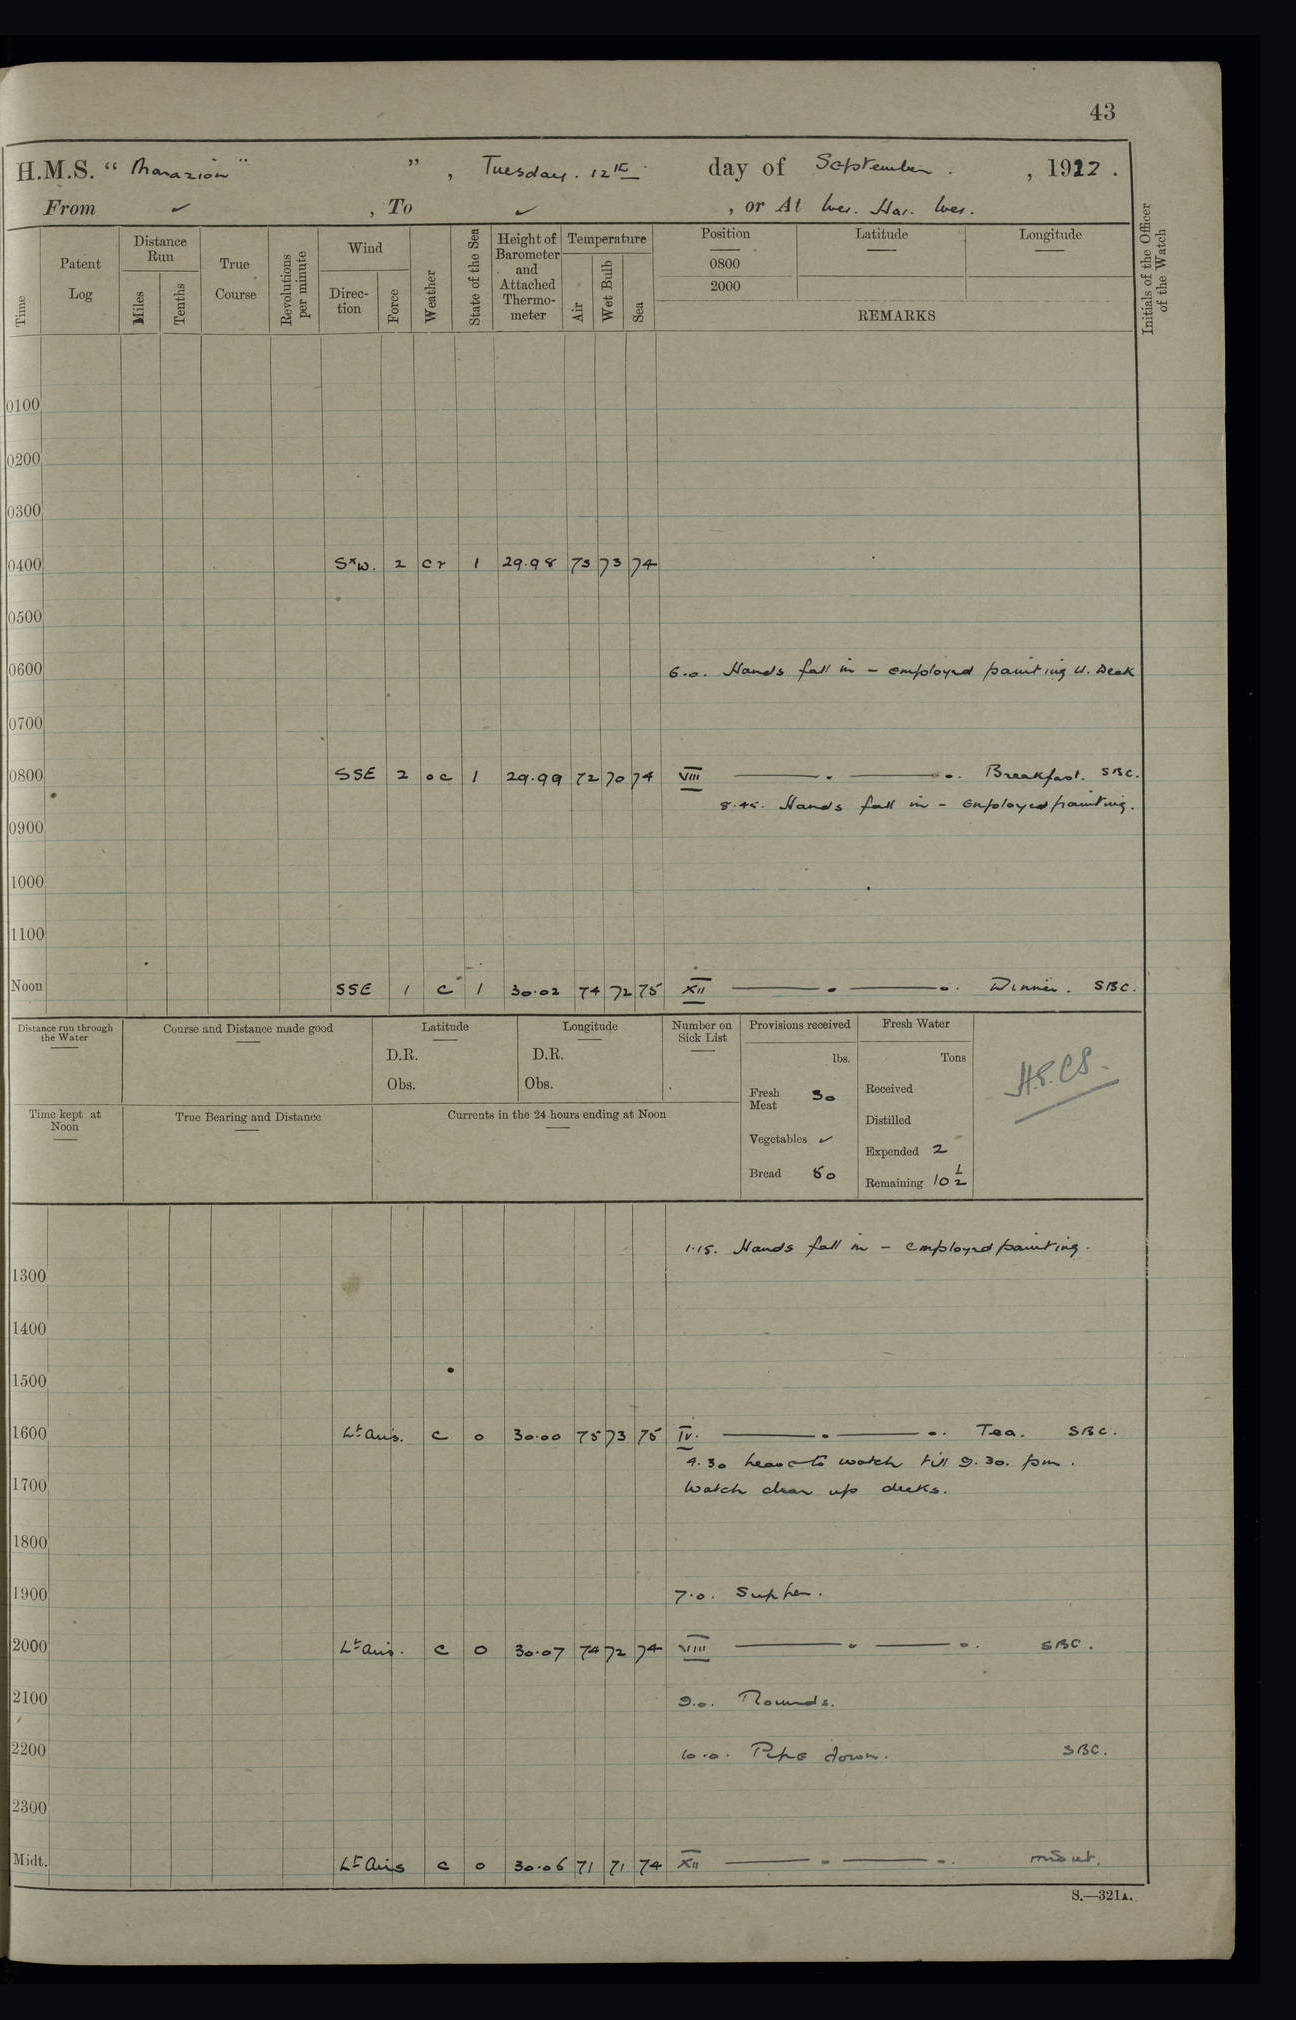 43
H.M.S. “ Marazion ” ” , Tuesday. 12th day of September. , 1922.
From ✓ , To ✓ , or At Wei. Hai. Wei.
Time
Patent Log
Distance Run
Miles
Tenths
True Course
Revolutions per minute
Wind
Direction
Force
Weather
State of the Sea
Height of Barometer and Attached Thermometer
Temperature
Air
Wet Bulb
Sea
Position
0800
2000
Latitude
Longitude
REMARKS
Initials of the Officer of the Watch
0100
0200
0300
0400 SxW. 2 cr 1 29.98 73 73 74
0500
0600 6.0. Hands fall in – employed painting U. Deck
0700
0800 SSE 2 oc 1 29.99 72 70 74 VIII Breakfast. SBC.
8.45. Hands fall in – employed painting.
0900
1000
1100
Noon SSE 1 c 1 30.02 74 72 75 XII Dinner. SBC.
Distance run through the Water
Course and Distance made good
Latitude
D.R.
Obs.
Longitude
D.R.
Obs.
Number on Sick List
Provisions received
lbs.
Fresh Meat 30
Vegetables ✓
Bread 80
Fresh Water
Tons
Received
Distilled
Expended 2
Remaining 10 ½
Time kept at Noon
True Bearing and Distance
Currents in the 24 hours ending at Noon
1.15. Hands fall in – employed painting.
1300
1400
1500
1600 Lt Airs. c 0 30.00 75 73 75 IV. Tea. SBC.
4.30 leave to watch till 9.30. pm.
1700 Watch clear up decks.
1800
1900 7.0. Supper.
2000 Lt Airs. c 0 30.07 74 72 74 VIII SBC.
2100 9.0. Rounds.
2200 10.0. Pipe down. SBC.
2300
Midt. Lt Airs c 0 30.06 71 71 74 XII
S.—321A.